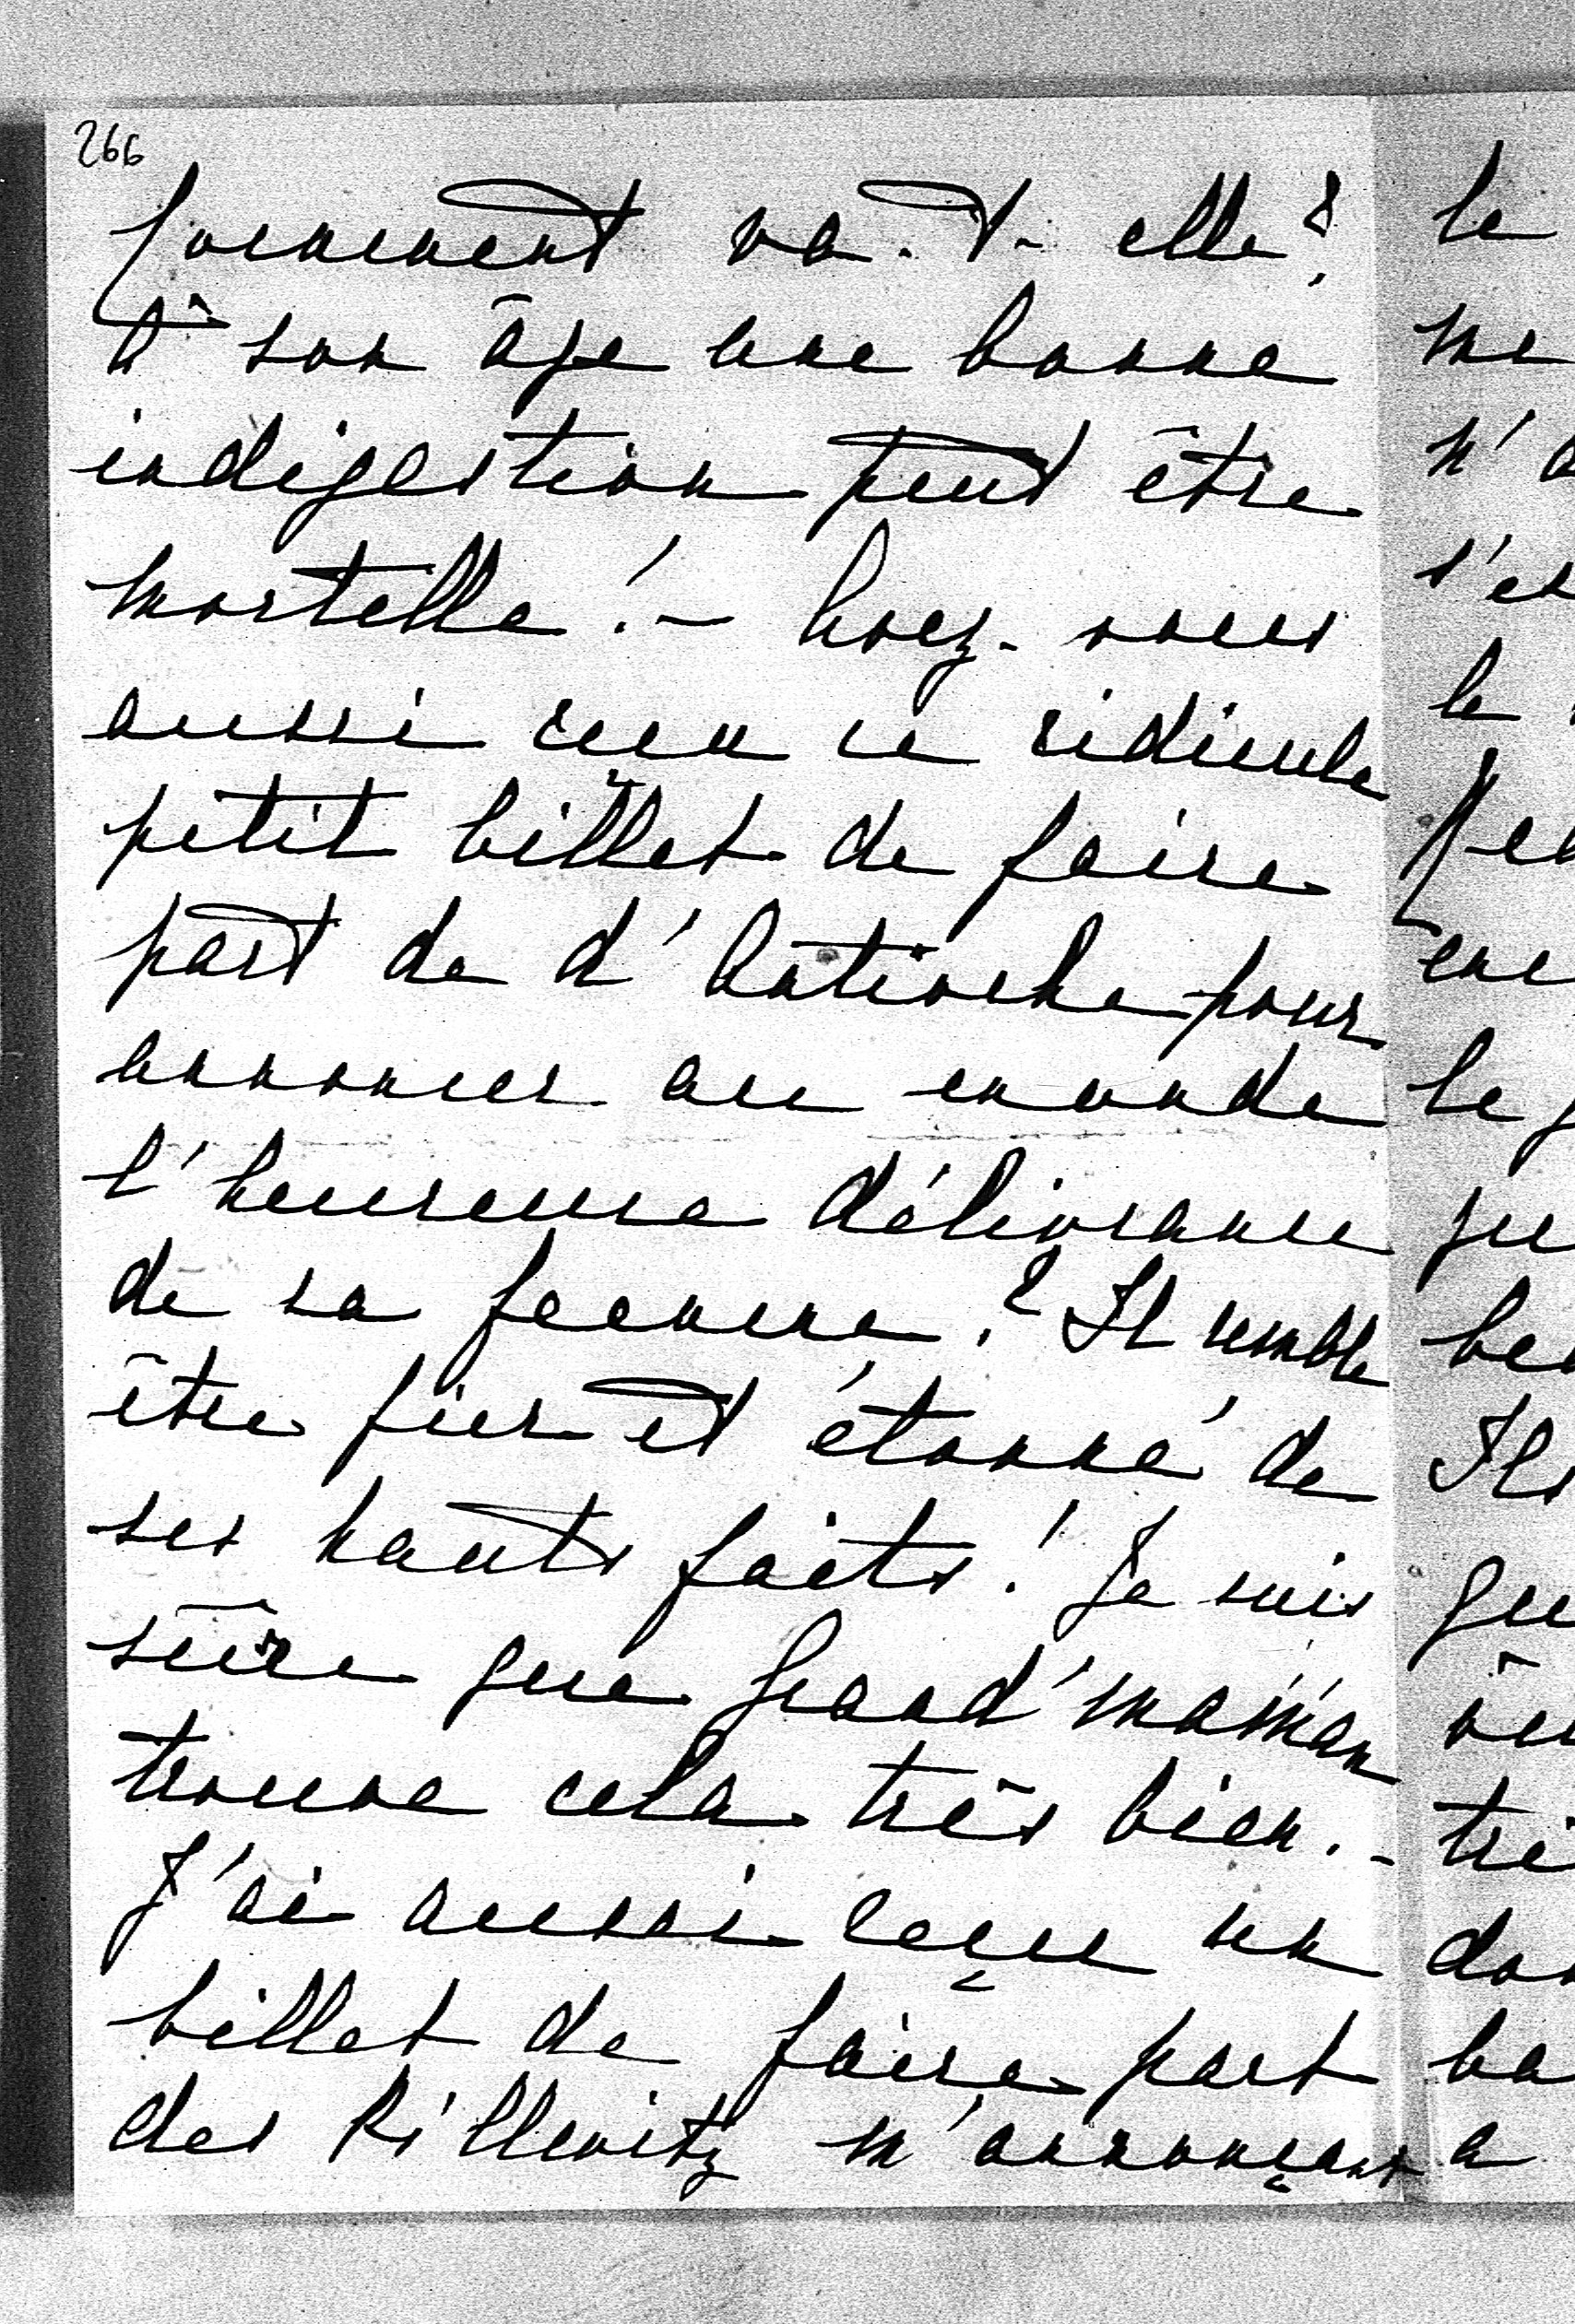 266
Comment va-t-elle?
A son âge une bonne
indigestion peut être
mortelle! - Avez-vous
aussi reçu ce ridicule
petit billet de faire
part de d'Antioche pour
annoncer au monde
l'heureuse délivrance
de sa femme? Il semble
être fier et étonné de
ses hauts faits! Je suis
sûre que grand'maman
trouve cela très bien. -
J'ai aussi reçu un
billet de faire part
des m'annonçant
le
me
n'a
s'es
le
en
le
qu
Ils
qu
trè
ba
a